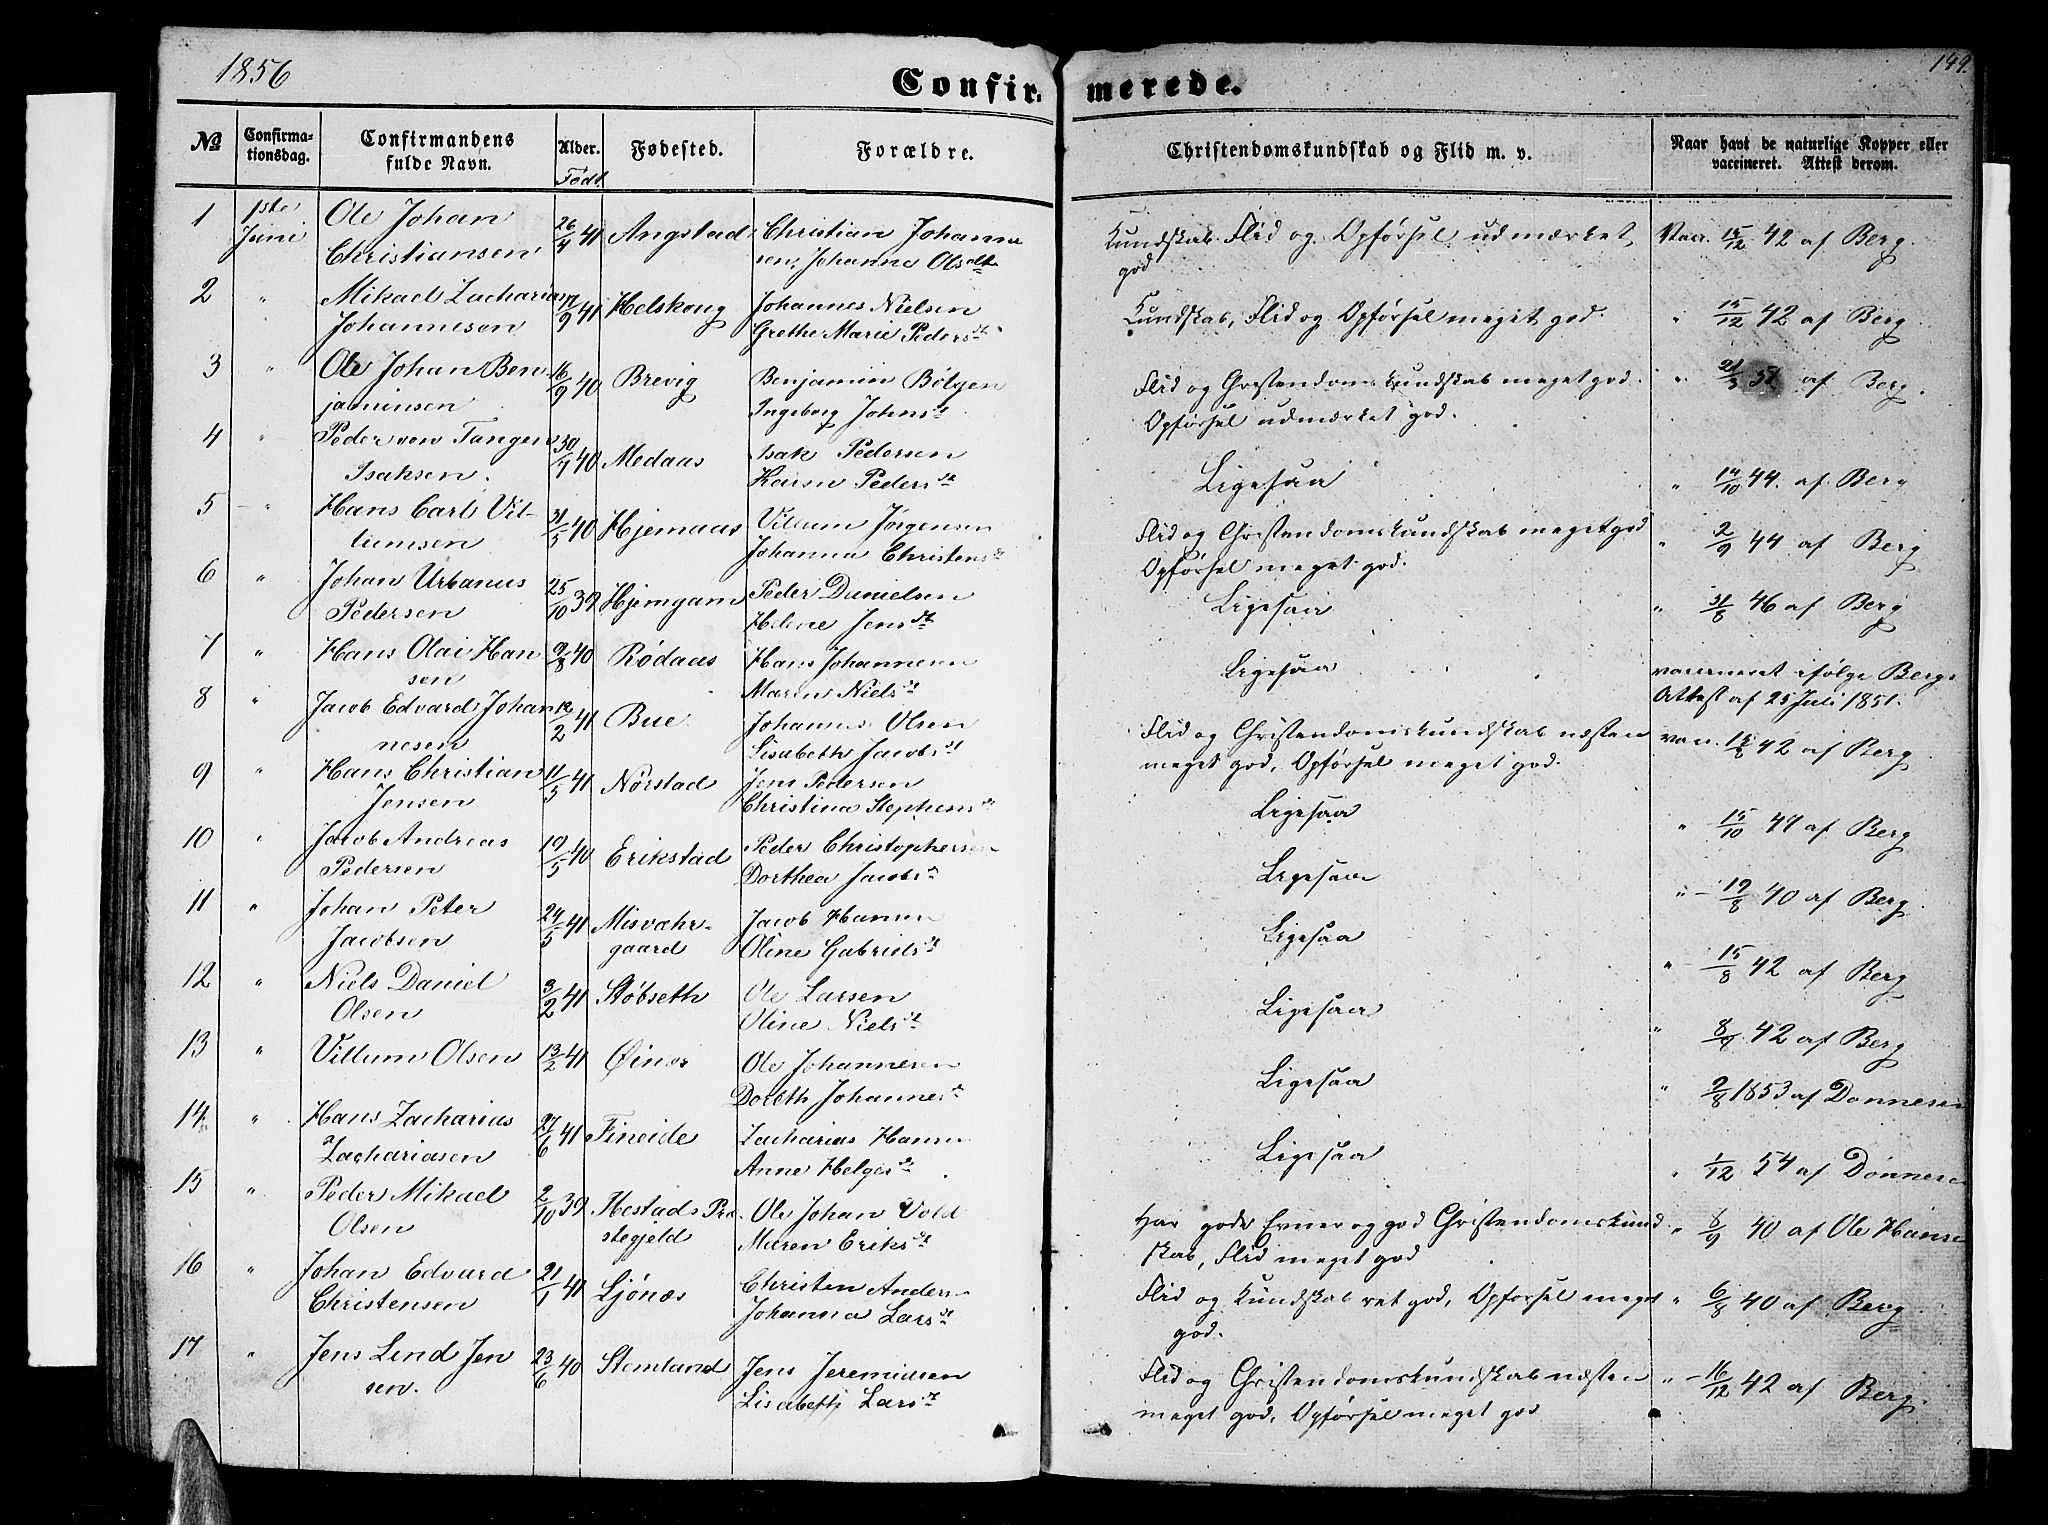 1856
Confir-
merede.
149.
No
Confirma-
tionsdag.
Confirmandens
fulde Navn.
Alder.
Født
Fødested.
Forældre.
Christendomskundskab og Flid m. v.
Naar havt de naturlige Kopper eller
vaccineret. Attest derom.
1 1ste Ole Johan 26/4 41 Angstad Christian Johanne
Juni Christiansen sen, Johanna Olsdtr
Kundskab Flid og Opførsel udmærket Vacc. 15/12 42 af Berg.
god
2 " Mikael Zacharias 9 41 Helskong Johannes Nielsen
Johannesen Grethe Marie Pedersdt
Kundskab, Flid og Opførsel meget god. " 15/12 42 af Berg
3 " Ole Johan Ben 16/9 40 Brevig Benjamin Bölgen
jaminsen Ingeborg Johnsdt
Flid og Christendomskundskab meget god. " 21/3 51 af Berg.
Opførsel udmærket god.
4 " Peder von Tangen 30/7 40 Medaas Isak Pedersen
Isaksen. Karen Pedersdt
Ligesaa " 10 44. af Berg
5 " Hans Carl Vil- 31/5 40 Hjemaas Villum Jörgensen
lumsen Johanna Christensdt
Flid og Christendomskundskab meget god " 2/9 44 af Berg
Opførsel meget god.
6 " Johan Urbanus 25/10 39 Hjemgam Peder Danielsen
Pedersen Helene Jensdt
Ligesaa " 31/8 46 af Berg
7 " Hans Olai Han 9/8 40 Rödaas Hans Johannesen
sen Maren Nielsdt
Ligesaa vaccineret ifølge Bergs
Attest af 25 Juli 1851.
8 " Jacob Edvard Johan 12/2 41 Bue Johannes Olsen
nesen Lisabeth Jacobsdt
Flid og Christendomskundskab næsten vacc. 42 af Berg
meget god, Opførsel meget god.
9 " Hans Christian 11/5 41 Nörstad Jens Pedersen
Jensen Christina Stephensdt
Ligesaa " 15/10 47 af Berg
10 " Jacob Andreas 19/5 40 Erikstad Peder Christophersen
Pedersen Dorthea Jacobsdt
Ligesaa " 19/8 40 af Berg.
11 " Johan Peter 24/5 41 Misvahr- Jacob Hansen
Jacobsen gaard Oline Gabrielsdt
Ligesaa " 15/8 42 af Berg
12 " Niels Daniel 3/2 41 Stöbseth Ole Larsen
Olsen Oline Nielsdt
Ligesaa " 8 42 af Berg
13 " Villum Olsen 13/2 41 Öinæs Ole Johannesen
Doreth Johannesdt
Ligesaa " 2/8 1853 af Dønnesen
14 " Hans Zacharias 27/6 41 Fineide Zacharias Hansen
Zachariasen Anne Helgesdt
Ligesaa " 1/12 54 af Dønnesen
15 " Peder Mikael 2/10 39 Hestads Præ Ole Johan Vold
Olsen stegjeld Maren Eriksdt
Har gode Evner og god Christendomskund " 8/9 40 af Ole Hanse
skab, Flid meget god
16 " Johan Edvard 21/1 41 Ljönæs Christen Anders
Christensen Johanna Larsdt
Flid og Kundskab ret god, Opførsel meget " 6/8 40 af Berg.
god.
17 " Jens Lend Jen 23/6 40 Stemland Jens Jeremiasen
sen. Lisabeth Larsdt
Flid og Christendomskundskab næsten " 16/12 42 af Berg.
meget god, Opførsel meget god